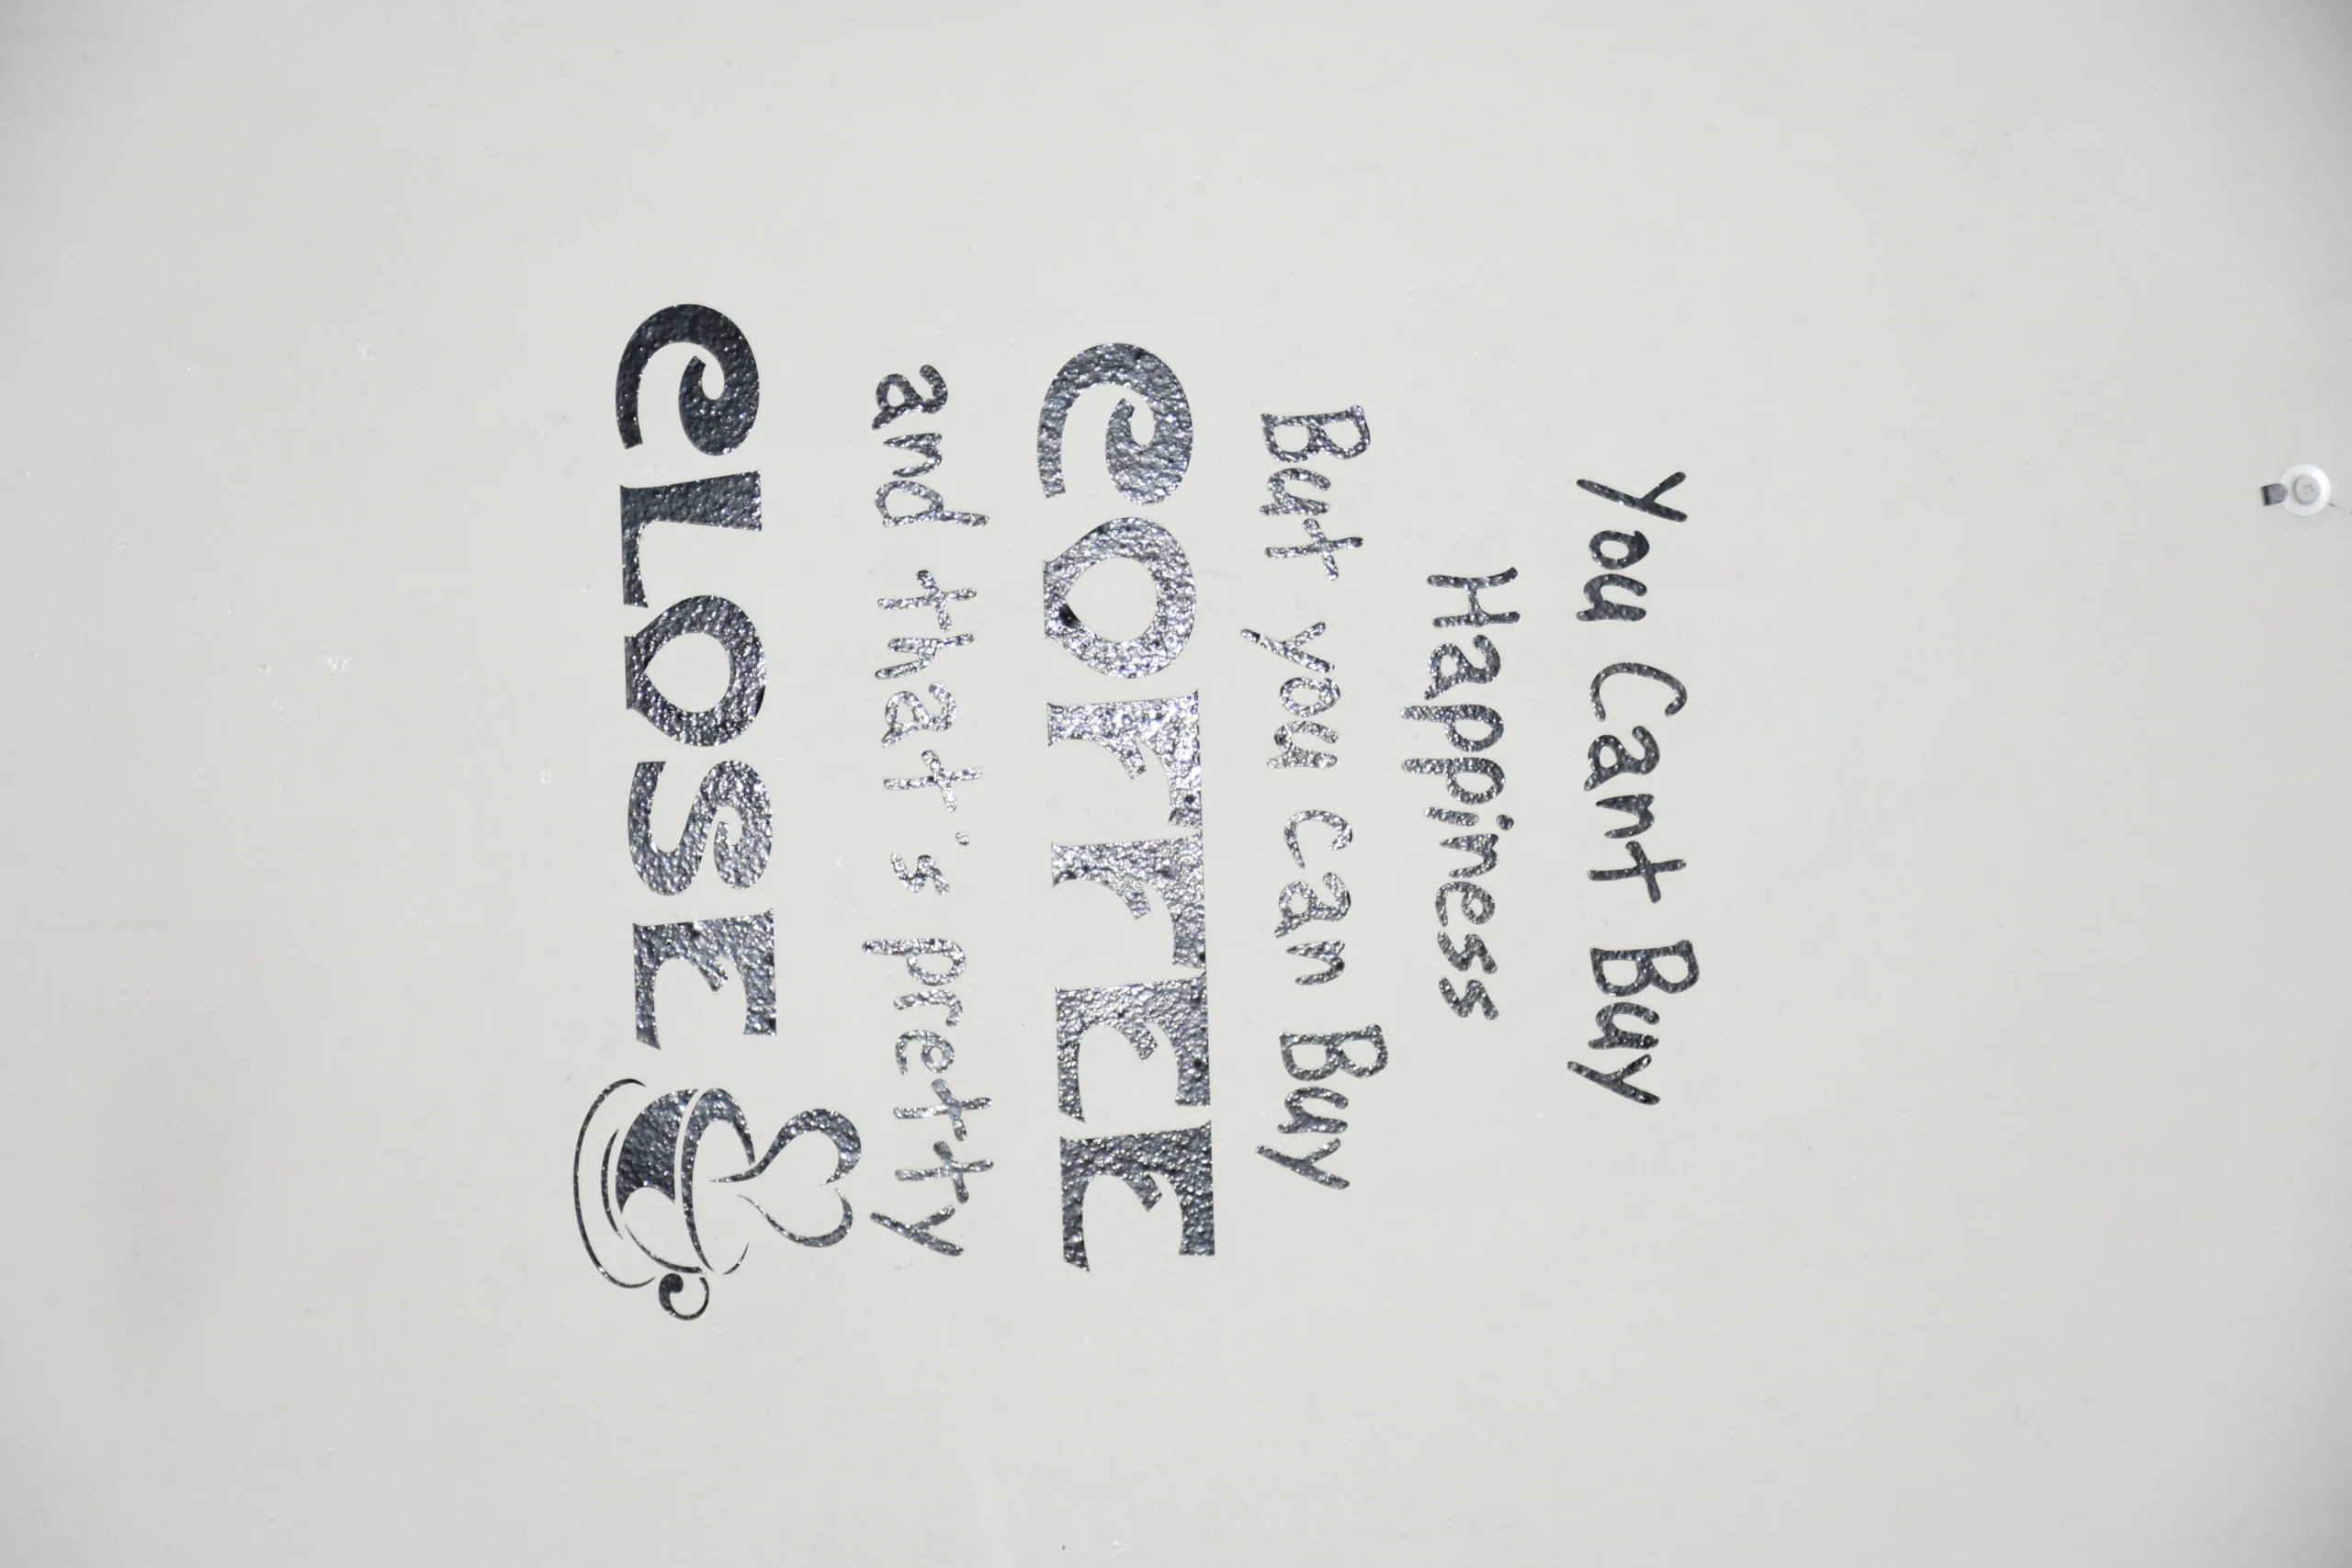 You Cant Buy
Happiness
But you can Buy
COFFEE
and that's pretty
CLOSE